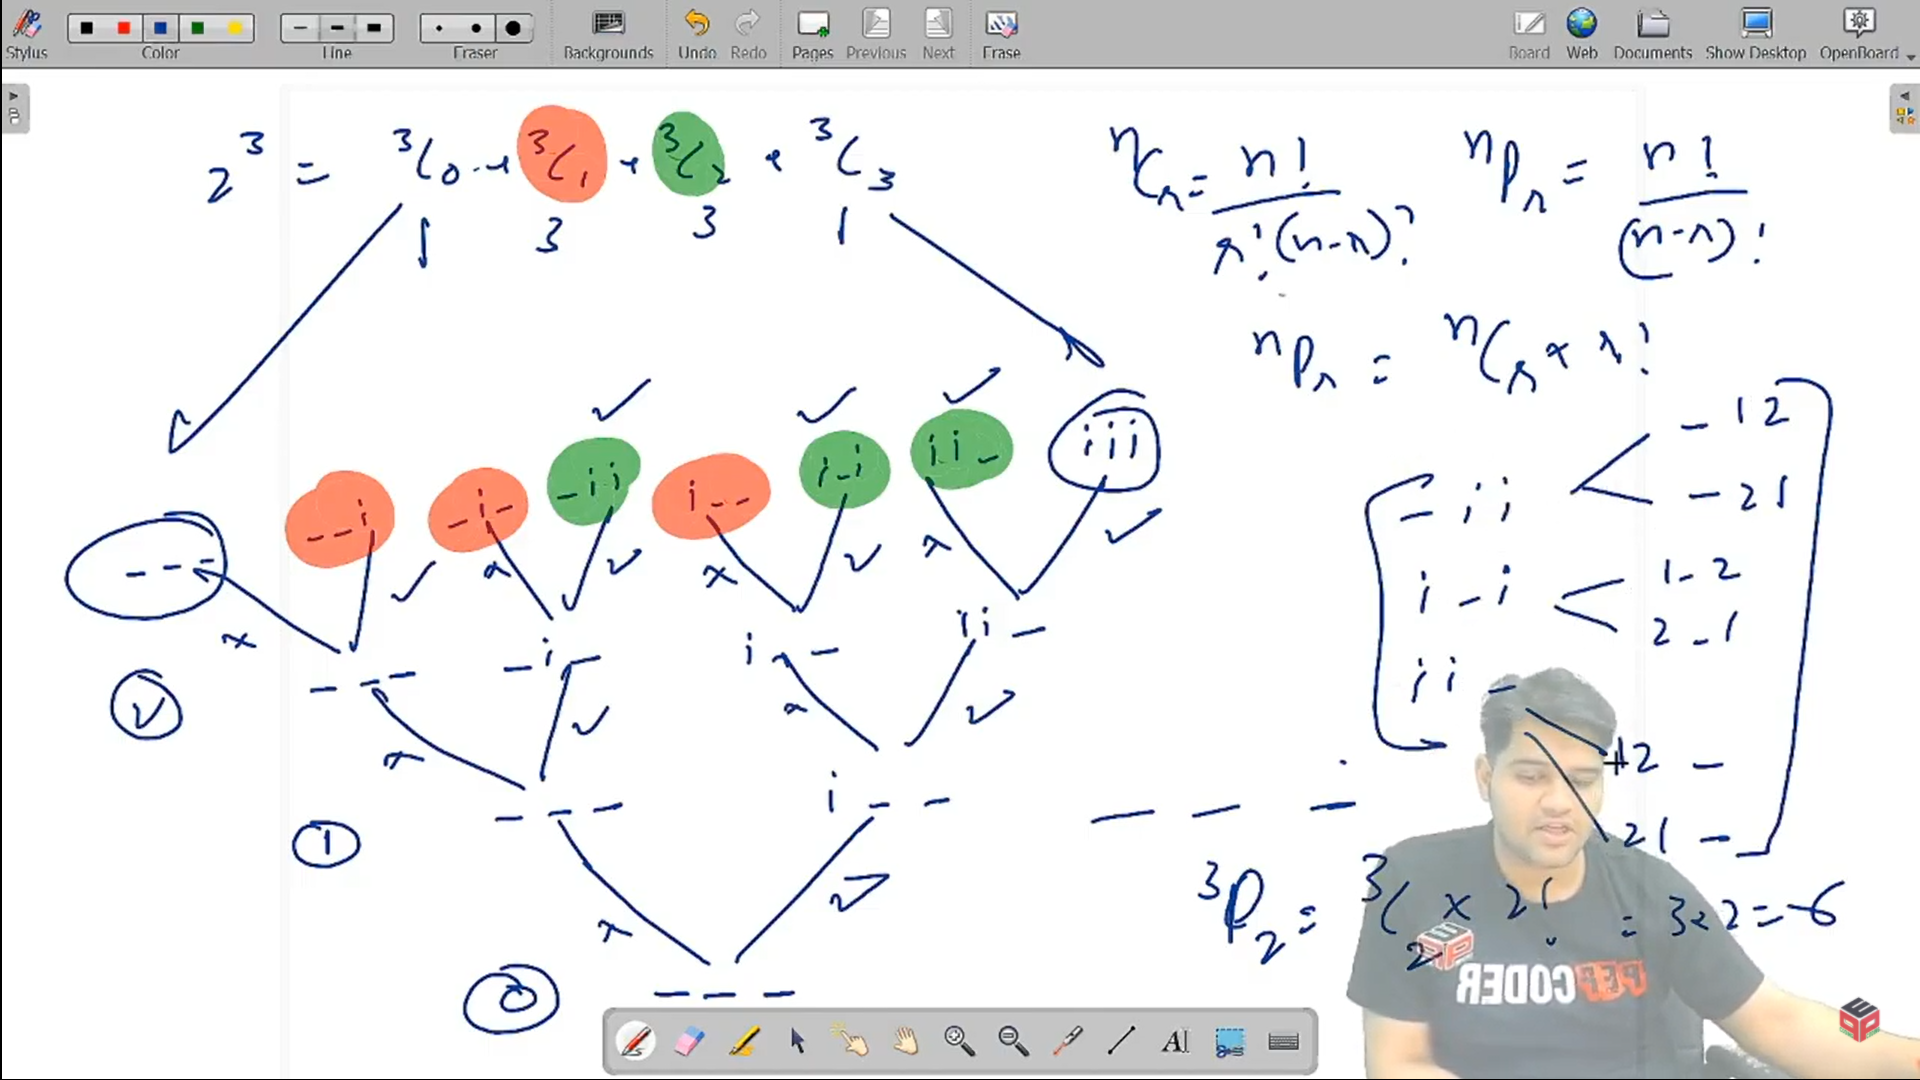 Stylus Color Line Eraser Backgrounds Undo Redo Pages Previous Next Erase Board Web Documents Show Desktop OpenBoard
2³ = ³C₀ + ³C₁ + ³C₂ + ³C₃
1 3 3 1
ⁿCᵣ = n! / r!(n-r)!
ⁿPᵣ = n! / (n-r)!
ⁿPᵣ = ⁿCᵣ × r!
- - - - - i - i - - i i i - - i - i i i - i i i
x ✓ x ✓ x ✓ x ✓
- - - - i - i - - i i -
2
x ✓ x ✓
- - - i - -
1
x ✓
- - -
0
- i i < - 1 2
- 2 1
i - i < 1 - 2
2 - 1
i i -
1 2 -
2 1 -
- - -
³P₂ = ³C₂ × 2! = 3×2 = 6
PEPCODER